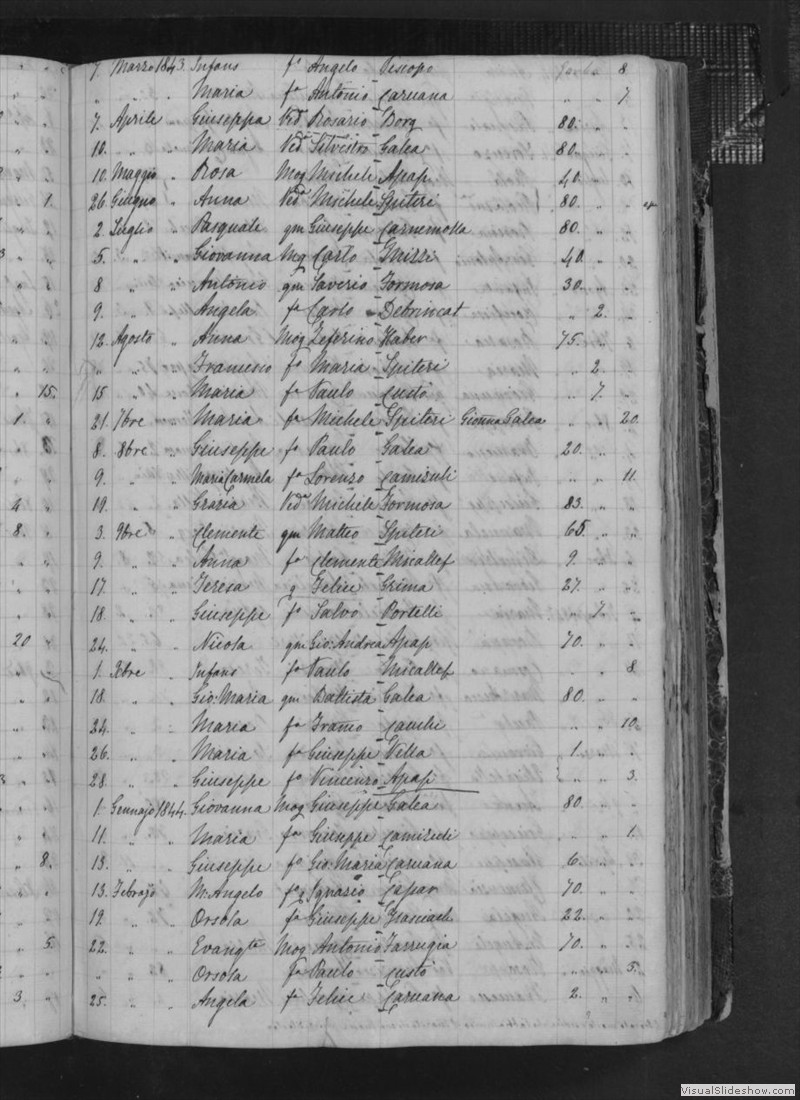 7. Marzo 1843. Infans fa Angelo Piscopo 8
" " " Maria fa Antonio Caruana " " 7
7. Aprile " Giuseppa Veda Rosario Borg 80. " "
10. " " Maria Veda Silvestro Galea 80. " "
10. Maggio " Rosa Mog Michele Apap 40. " "
1. 26. Giugno " Anna Veda Michele Spiteri 80. " "
2. Luglio " Pasquale qm Giuseppe 80. " "
5. " " Giovanna Mog Carlo Mizzi 40. " "
8 " " Antonio qm Saverio Formosa 30. " "
9. " " Angela fa Carlo Debrincat " 2. "
12. Agosto " Anna Mog Zeferino Haber 75. " "
" " " Francesco fo Maria Spiteri " 2. "
15. 15 " " Maria fa Paulo Custò " 7. "
1. 21. 7bre " Maria fa Michele Spiteri Gionna Galea " " 20.
8. 8bre " Giuseppe fo Paulo Galea 20. " "
9. " " Maria Carmela fa Lorenzo Camisuli " " 11.
4. 19. " " Grazia Veda Michele Formosa 83. " "
8. 3. 9bre " Clemente qm Matteo Spiteri 65. " "
9. " " Anna fa Clemente Micallef 9. " "
17. " " Teresa q Felice Grima 27. " "
18. " " Giuseppe fo Salvo Portelli " 7. "
20 24. " " Nicola qm Gio: Andrea Apap 70. " "
1. Xbre " Infans fo Paulo Micallef " " 8
18. " " Gio: Maria qm Battista Galea 80. " "
24. " " Maria fa Franco " " 10.
26. " " Maria fa Giuseppe Vella 1. "
28. " " Giuseppe fo Vincenzo Apap " " 3.
1. Gennajo 1844. Giovanna Mog Giuseppe Galea 80. "
11. " " Maria fa Giuseppe Camisuli " " 1.
8. 13. " " Giuseppe fo Gio: Maria Caruana 6. " "
13. Febrajo M: Angelo Ignazio 70. " "
19. " " Orsola fa Giuseppe 22. " "
5. 22. " " Evangta Mog Antonio Farrugia 70. " "
" " " Orsola fa Paulo Custò " " 5.
3 25. " " Angela fa Felice Caruana 2. " "
VisualSlideshow.com